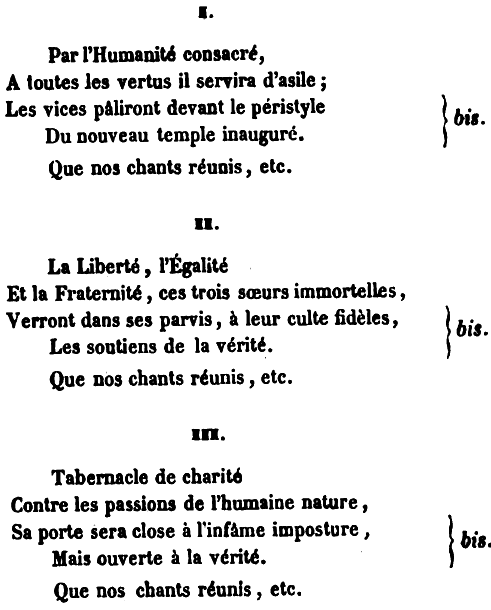 I.
Par l'Humanité consacré,
A toutes les vertus il servira d'asile ;
Les vices pâliront devant le péristyle
Du nouveau temple inauguré.
bis.
Que nos chants réunis, etc.
II.
La Liberté, l'Égalité
Et la Fraternité, ces trois sœurs immortelles,
Verront dans ses parvis, à leur culte fidèles,
Les soutiens de la vérité.
bis.
Que nos chants réunis, etc.
III.
Tabernacle de charité
Contre les passions de l'humaine nature,
Sa porte sera close à l'infâme imposture,
Mais ouverte à la vérité.
bis.
Que nos chants réunis, etc.